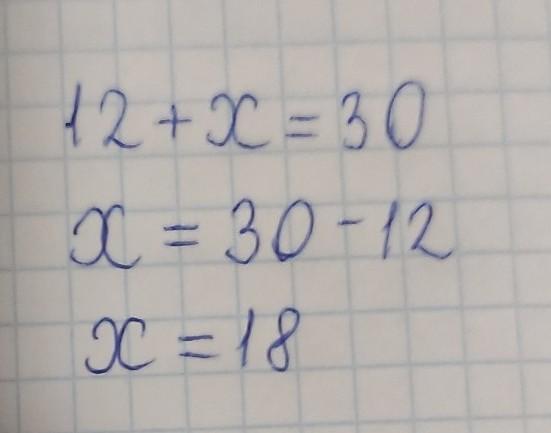 12 + x = 30
x = 30 - 12
x = 18